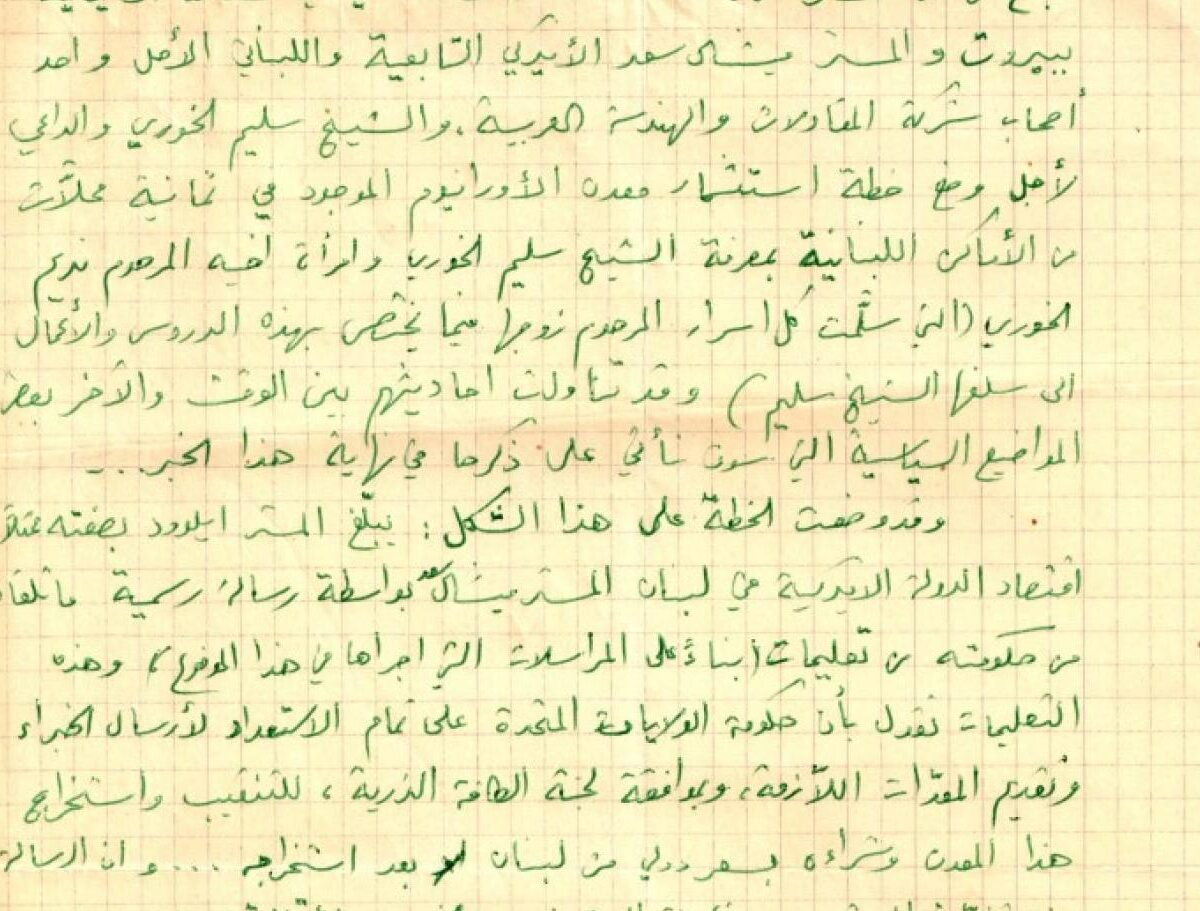 ببيروت والمستر ميشال سعد الأميركي التابعية واللبناني الأصل واحد
أصحاب شركة المقاولات والهندسة العربية، والشيخ سليم الخوري والداعي
لأجل وضع خطة استثمار معدن الأورانيوم الموجود في ثمانية محلّات
من الأماكن اللبنانية بمعرفة الشيخ سليم الخوري وامرأة أخيه المرحوم نديم
الخوري (التي سلّمت كل اسرار المرحوم زوجها فيما يختص بهذه الدروس والأعمال
الى سلفها الشيخ سليم) وقد تناولت احاديثهم بين الوقت والآخر بعض
المواضيع السياسية التي سوف نأتي على ذكرها في نهاية هذا الخبر...
وقد وضعت الخطة على هذا الشكل: يبلّغ المستر ايلوود بصفته ممثلاً
اقتصاد الدولة الاميركية في لبنان المستر ميشال سعد بواسطة رسالة رسمية ما تلقاه
من حكومته من تعليمات (بناءً على المراسلات التي اجراها في هذا الموضوع)، وهذه
التعليمات تقول بأن حكومة الولايات المتحدة على تمام الاستعداد لأرسال الخبراء
وتقديم المعدّات اللازمة، وبموافقة لجنة الطاقة الذرية، للتنقيب واستخراج
هذا المعدن وشراءه بسعر دولي من لبنان بعد استخراجه .... وان الرسالة